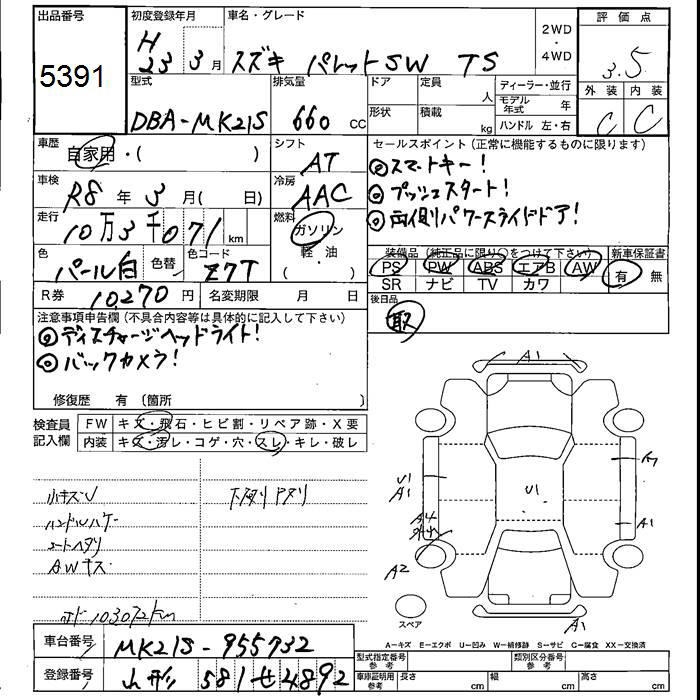 出品番号
5391
初度登録年月
H
23 3月
車名・グレード
スズキ パレットSW TS
2WD
・
4WD
評価点
3.5
外装 内装
C C
型式
DBA-MK21S
排気量
660 cc
ドア
定員
人
形状
積載
kg
ディーラー・並行
モデル年式 年
ハンドル 左・右
車歴
自家用・( )
シフト
AT
車検
R8年3月( 日)
冷房
AAC
走行
10万3千071 km
燃料
ガソリン
軽・油
( )
色
パール白
色替
色コード
Z7T
R券 10270円
名変期限 月 日
セールスポイント(正常に機能するものに限ります)
◎スマートキー!
◎プッシュスタート!
◎両側パワースライドドア!
装備品(純正品に限り○をつけて下さい)
新車保証書
PS PW ABS エアB AW
SR ナビ TV カワ
有 無
後日品
取
注意事項申告欄(不具合内容等は具体的に記入して下さい)
◎ディスチャージヘッドライト!
◎バックカメラ!
修復歴 有 〔箇所 〕
検査員
記入欄
FW キズ・飛石・ヒビ割・リペア跡・X要
内装 キズ・汚レ・コゲ・穴・スレ・キレ・破レ
小キズU
下廻リサビ
ハンドルハゲ
シートヘタリ
AWキズ
103072km
A1
U1
A1
U1
A1
A4
A2
A1
スペア
A-キズ E-エクボ U-凹み W-補修跡 S-サビ C-腐食 XX-交換済
車台番号 MK21S-955732
登録番号 山形 581 せ 4892
型式指定番号
参考
類別区分番号
参考
車庫証明用
参考
長さ cm
幅 cm
高さ cm